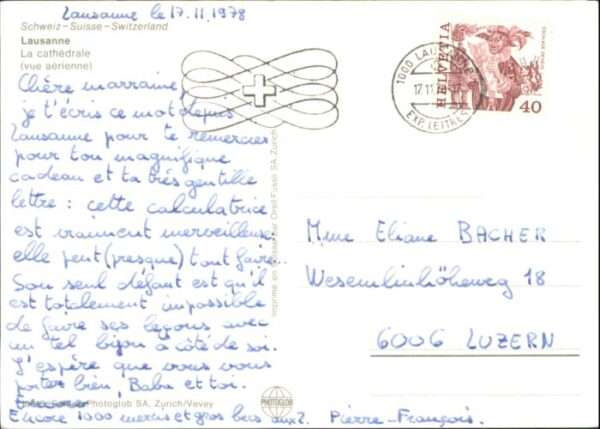 Lausanne le 17.11.1978
Schweiz - Suisse - Switzerland
Lausanne
La cathédrale
(vue aérienne)
Chère marraine,
je t'écris ce mot depuis
Lausanne pour te remercier
pour ton magnifique
cadeau et ta très gentille
lettre : cette calculatrice
est vraiment merveilleuse:
elle peut (presque) tout faire...
Son seul défaut est qu'il
est totalement impossible
de faire ses leçons avec
un tel bijou à côté de soi.
J'espère que vous vous
portez bien, Baba et toi.
Encore 1000 mercis et gros becs aux 2. Pierre-François.
Photoglob SA, Zurich/Vevey
PHOTOGLOB
Imprimé en Suisse par Orell Füssli SA, Zurich
1000 LAUSANNE
17.11.
EXP. LETTRES
HELVETIA
40
Mme Eliane BACHER
Wesemlinhöheweg 18
6006 LUZERN